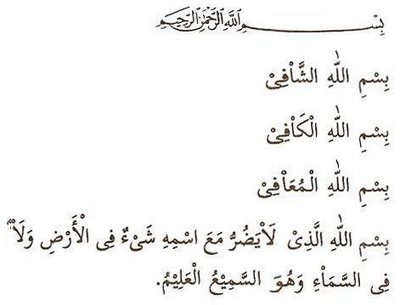 بِسْمِ اللّٰهِ الرَّحْمٰنِ الرَّحِيْمِ
بِسْمِ اللّٰهِ الشَّاْفِىْ
بِسْمِ اللّٰهِ الْكَاْفِىْ
بِسْمِ اللّٰهِ الْمُعَاْفِىْ
بِسْمِ اللّٰهِ الَّذِىْ لَاْيَضُرُّ مَعَ اسْمِهِ شَىْءٌ فِى الْأَرْضِ وَلَاْ
فِى السَّمَاْءِ وَهُوَ السَّمِيْعُ الْعَلِيْمُ.